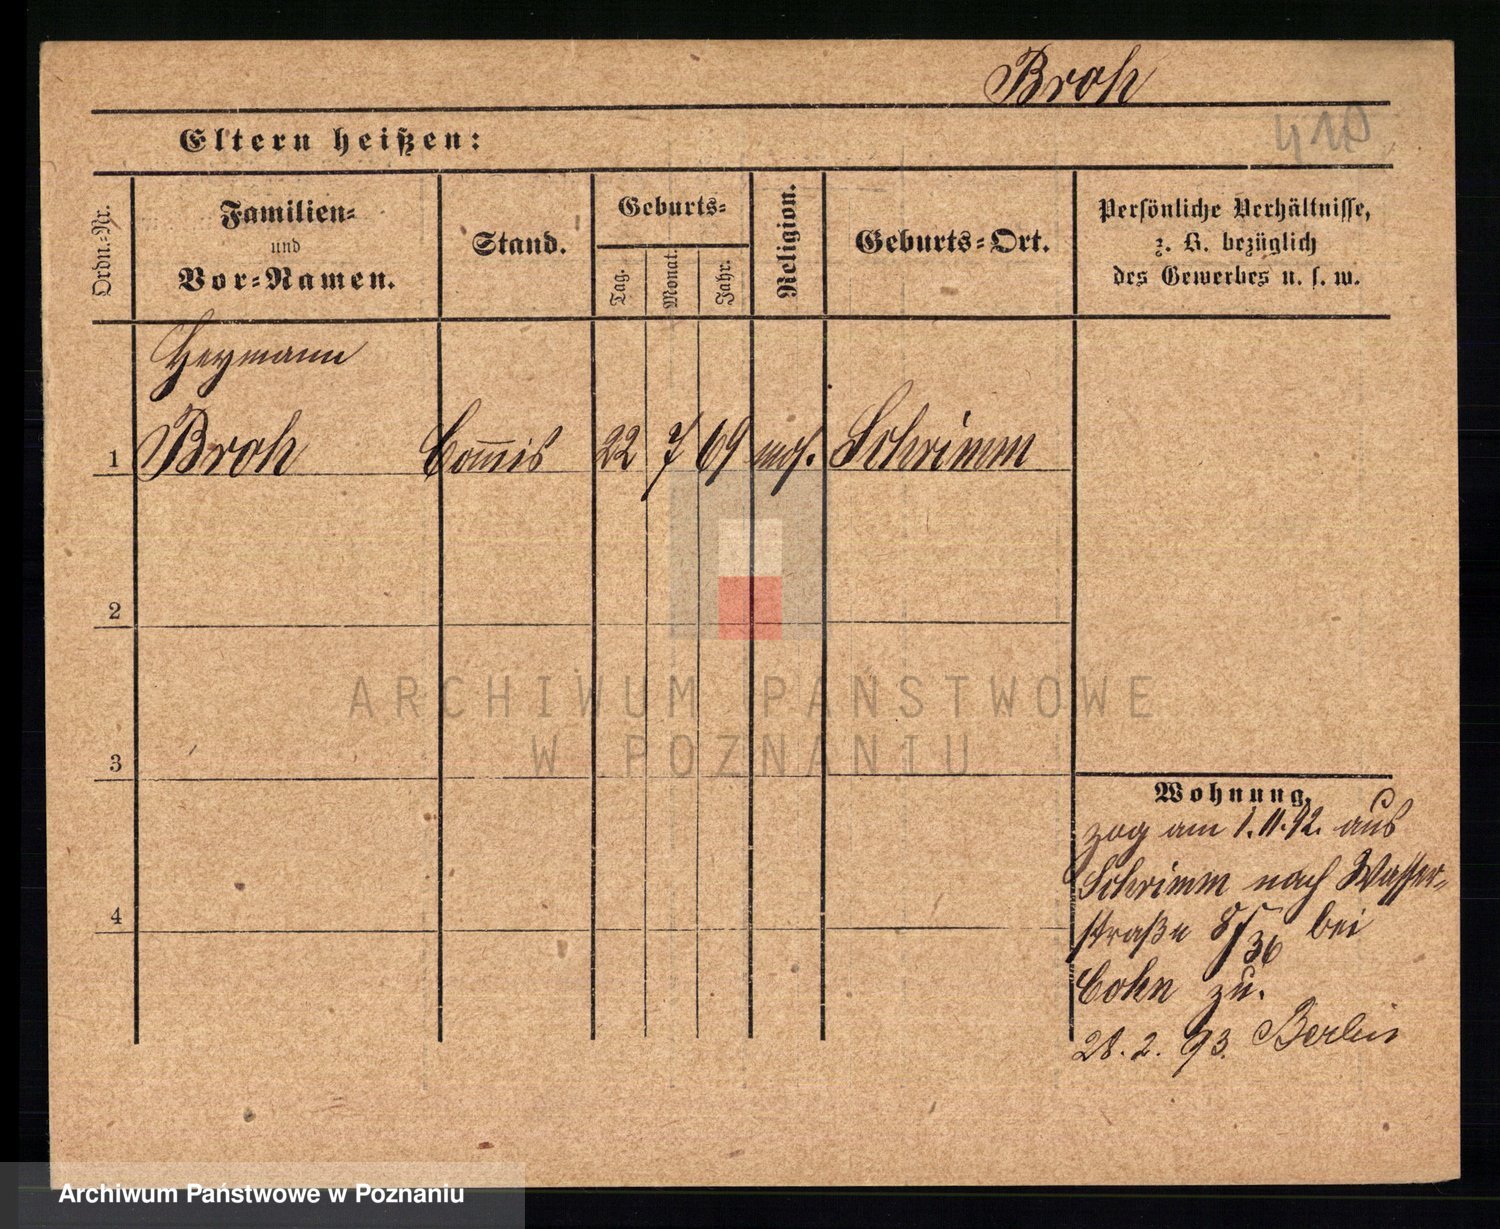 Broh
410
Eltern heißen:
Ordn.-Nr.
Familien-
und
Vor-Namen.
Stand.
Geburts-
Tag.
Monat.
Jahr.
Religion.
Geburts-Ort.
Persönliche Verhältnisse,
z. B. bezüglich
des Gewerbes u. s. w.
Heymann
1 Broh Com̅is 22 7 69 mos. Schrimm
2
3
4
Wohnung.
zog am 1.11.92. aus
Schrimm nach Wasser-
straße 8/36 bei
Cohn zu.
28.2.93. Berlin
ARCHIWUM PAŃSTWOWE
W POZNANIU
Archiwum Państwowe w Poznaniu